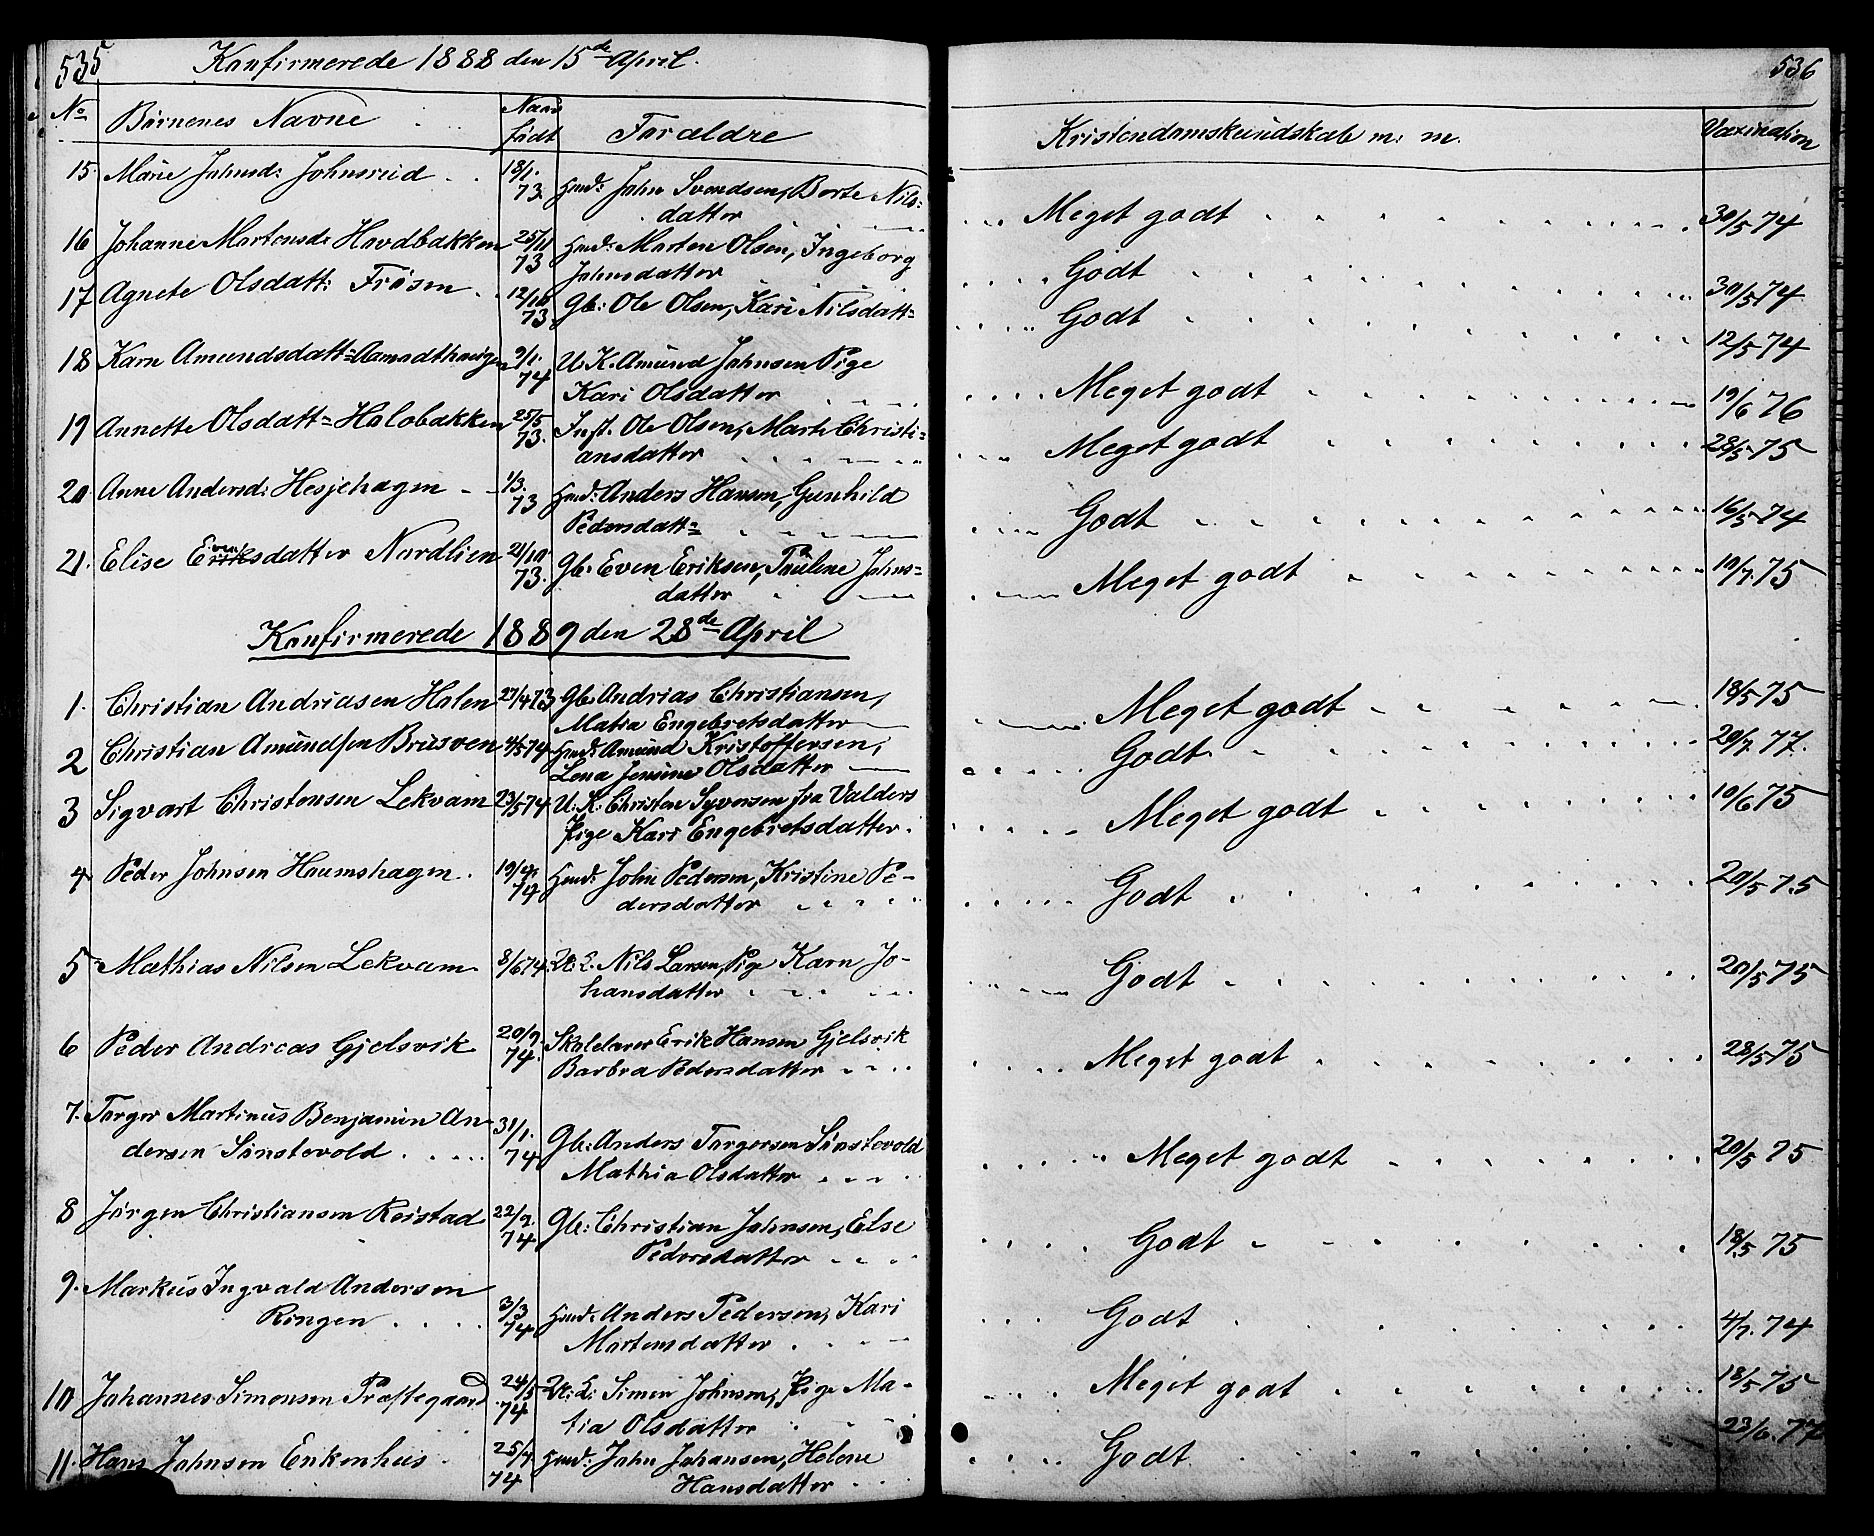 535 Konfirmerede 1888 den 15de April.
No Börnenes Navne Naar født Forældre
15. Marie Johnsd: Johnsrud 18/1. 73. Gmd: John Svendsen, Berte Nils:
datter
16 Johanne Martensd: Havdbakken 25/11 73 Gmd: Marten Olsen, Ingeborg
Johnsdatter
17 Agnete Olsdatt: Frösen 12/10 73. Gb: Ole Olsen, Kari Nilsdatt=
18 Karn Amundsdatt= 9/1. 74 U. K. Amund Johnsen Pige
Kari Olsdatter
19 Annette Olsdatt= Holobakken 25/5 73. Inst. Ole Olsen, Marte Christi=
ansdatter
20 Anne Andersd: Hesjehagen 1/3. 73 Gmd: Anders Hansen, Gunhild
Pedersdatt=
21. Elise Evensdatter Nordlien 21/10 73. Gb. Even Eriksen, Pauline Johns=
datter
Konfirmerede 1889 den 28de April
1. Christian Andriasen Holen 27/4 73 Gb. Andrias Christiansen,
Matia Engebretsdatter
2 Christian Amundsen Brusven 4/5 74 Gmd: Amund Kristoffersen,
Lena Jensine Olsdatter
3 Sigvart Christensen Lekvam 23/5 74. U. K. Christen Syversen fra Valders
Pige Kari Engebretsdatter.
4 Peder Johnsen Haumshagen. 19/4. 74 Gmd: John Pedersen, Kristine Pe-
dersdatter
5 Mathias Nilsen Lekvam 8/6 74. Nils Larsen, Pige Karn Jo-
hansdatter
6 Peder Andreas Gjelsvik 20/9. 74. Skolelærer Erik Hansen Gjelsvik
Barbra Pedersdatter
7. Torger Martinus Benjamin An-
dersen Sönstevold 31/1. 74 Gb: Anders Torgersen Sönstevold
Mathia Olsdatter
8 Jörgen Christiansen Reistad 22/2. 74 Gb: Christian Johnsen, Else
Pedersdatter
9. Markus Ingvald Andersen
Ringen 3/3 74 Gmd: Anders Pedersen, Kari
Martensdatter
10 Johannes Simensen Præstegaard 24/5 74 Simen Johnsen, Pige Ma-
tia Olsdatter
11. Hans Johnsen Enkenhus 25/4 74 Gmd: John Johansen, Helene
Hansdatter
536
Kristendomskundskab m. m. Vaxination
Meget godt 30/5 74
Godt 30/5 74
Godt 12/5 74
Meget godt 19/6 76
Meget godt 28/5 75
Godt 16/5 74
Meget godt 10/7. 75
Meget godt 18/5 75
Godt 20/7. 77.
Meget godt 10/6 75
Godt 20/5 75
Godt 20/5 75
Meget godt 28/5 75
Meget godt 20/5 75
Godt 18/5 75
Godt 4/7. 74
Meget godt 18/5 75
Godt 23/6. 77